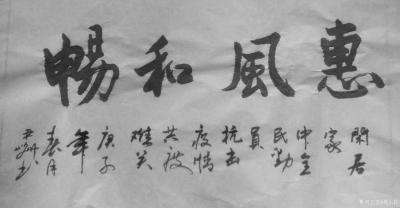 惠風和暢
閑居
家
中全
民動
員
抗击
疫情
共渡
难关
庚子
年
春月
书